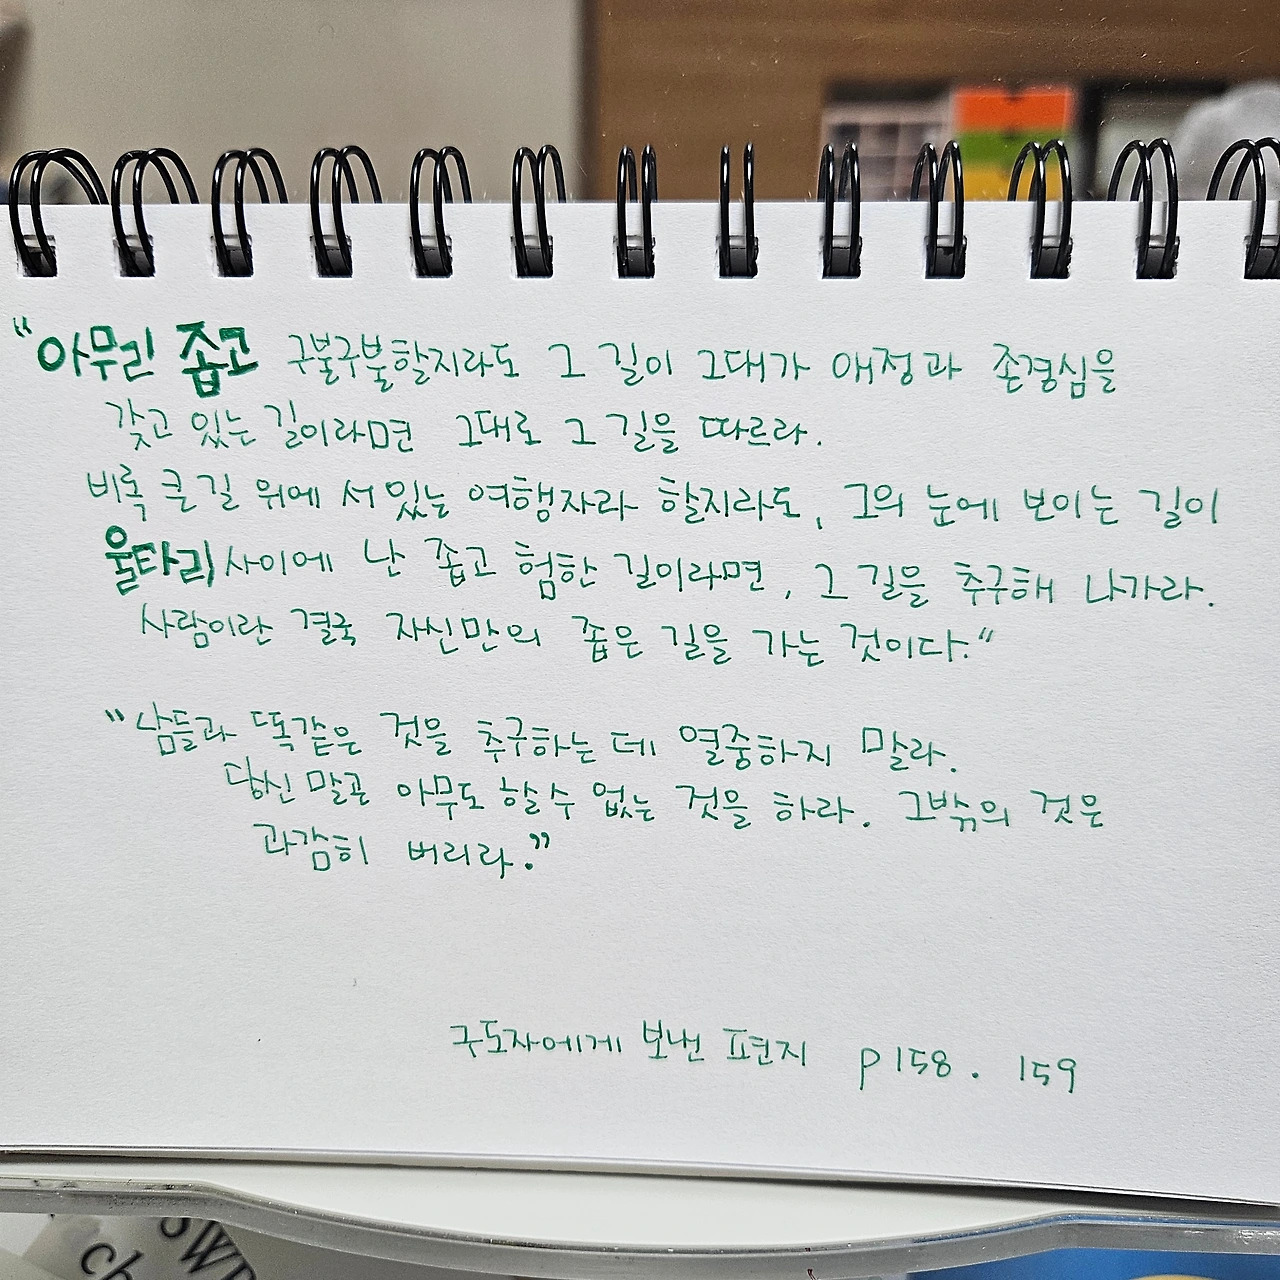 "아무리 좁고 구불구불할지라도 그 길이 그대가 애정과 존경심을
갖고 있는 길이라면 그대로 그 길을 따르라.
비록 큰길 위에 서 있는 여행자라 할지라도, 그의 눈에 보이는 길이
울타리 사이에 난 좁고 험한 길이라면, 그 길을 추구해 나가라.
사람이란 결국 자신만의 좁은 길을 가는 것이다."
"남들과 똑같은 것을 추구하는 데 열중하지 말라.
당신 말곤 아무도 할 수 없는 것을 하라. 그밖의 것은
과감히 버리라."
구도자에게 보낸 편지 p 158. 159